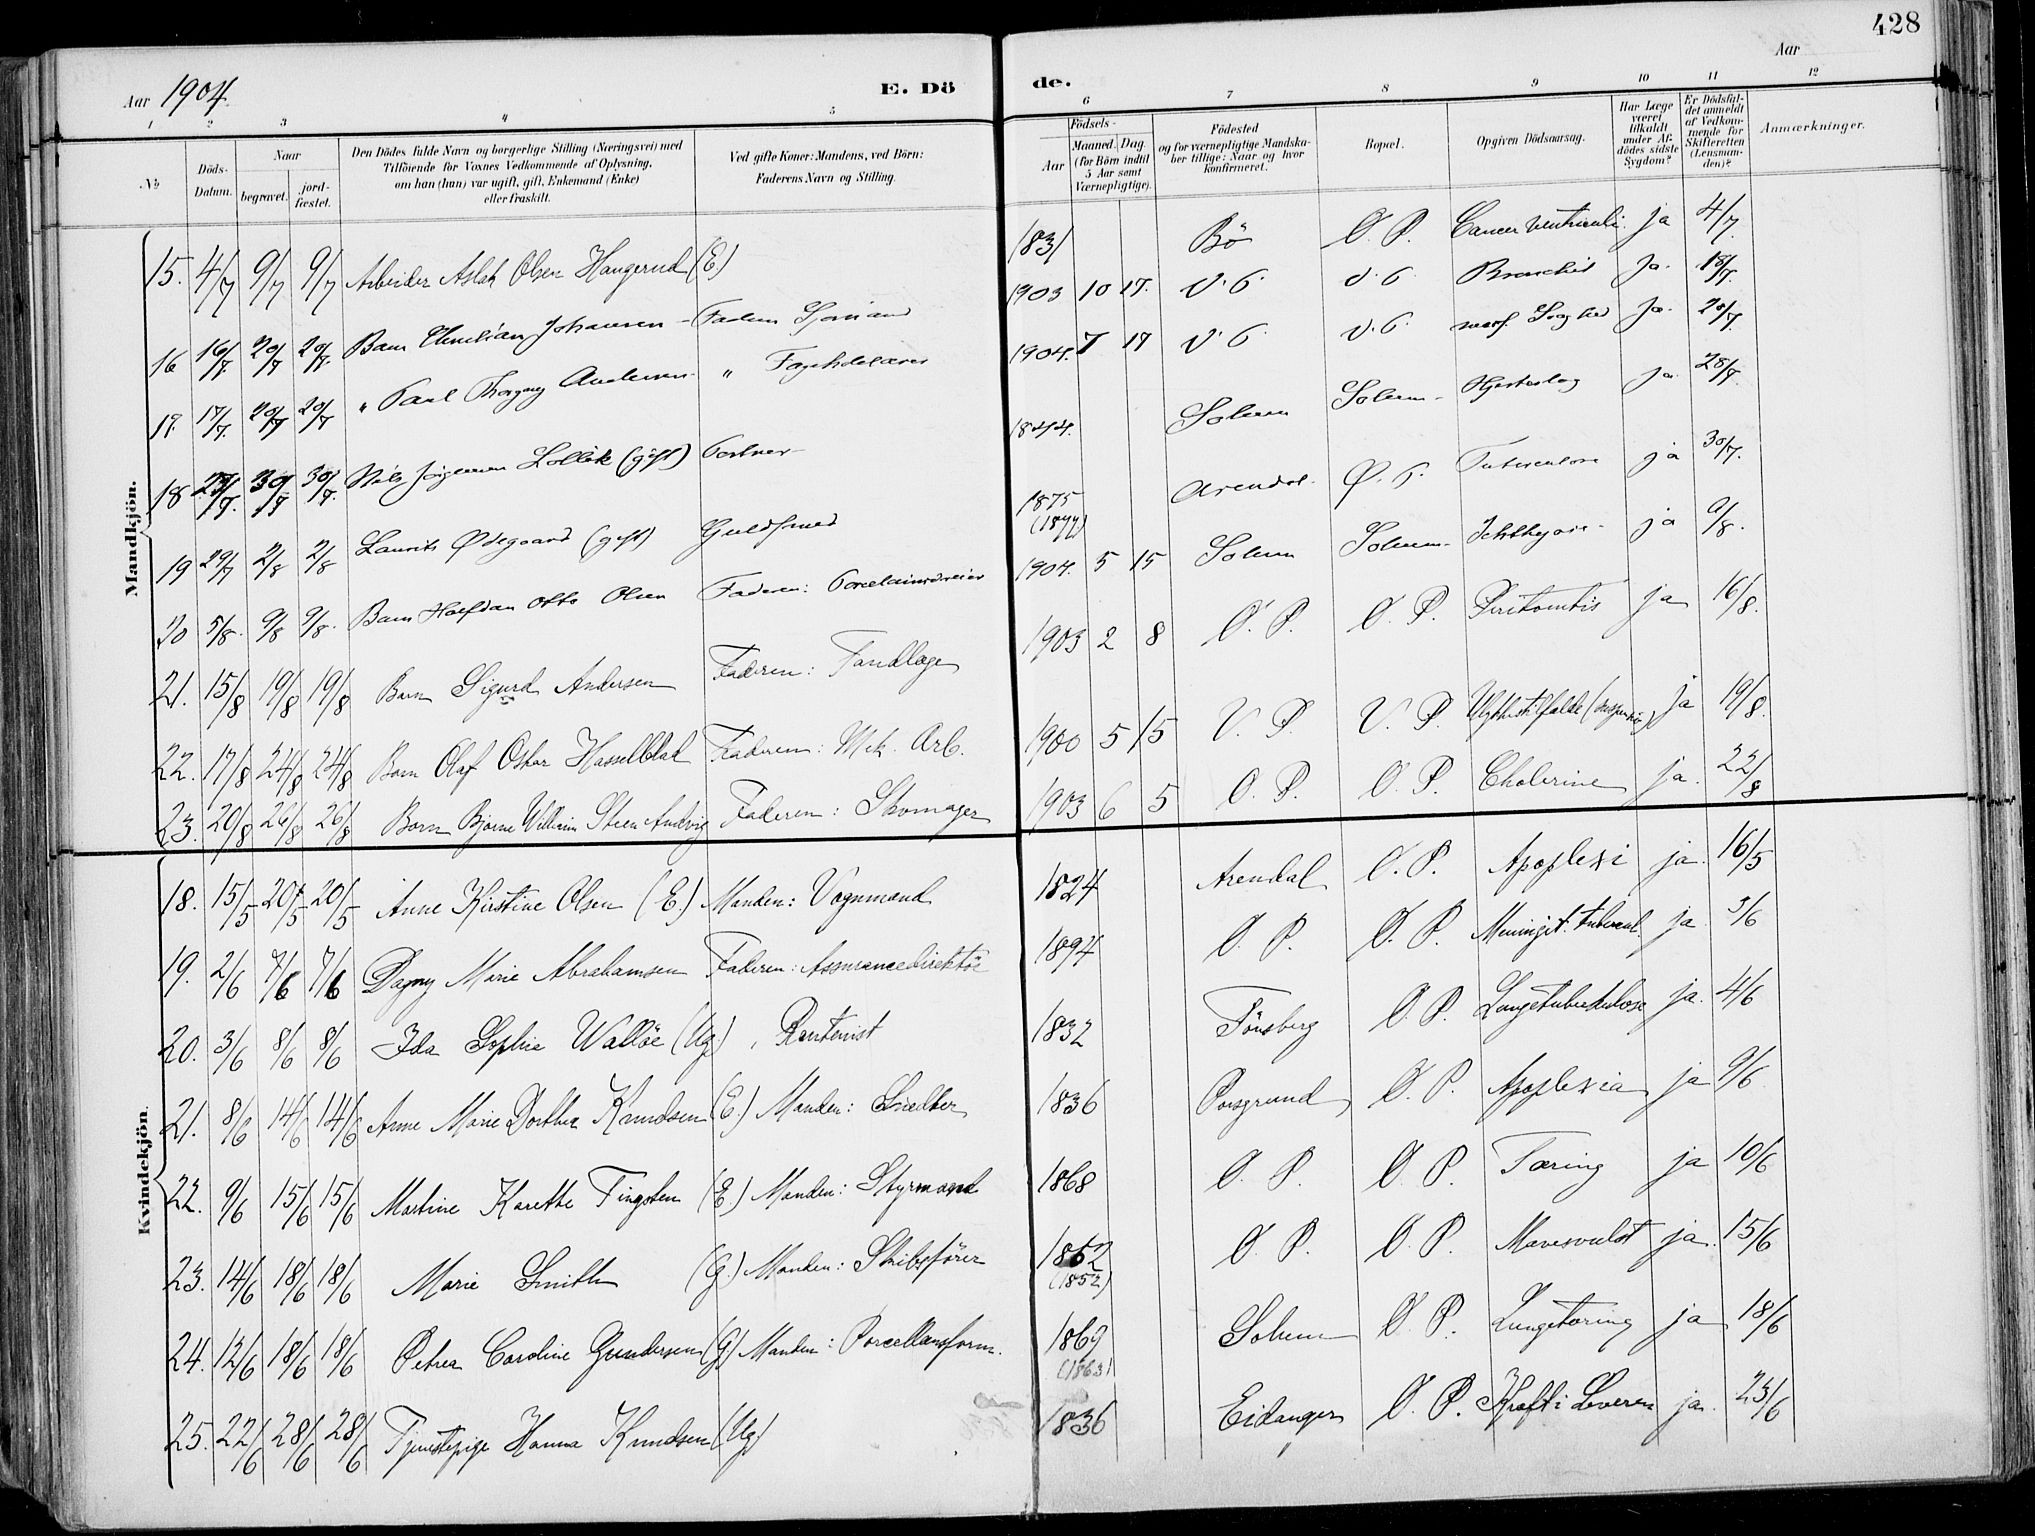 428
Aar 1904
E. Dö
de.
Aar
1 2 3 4 5 6 7 8 9 10 11 12
No
Döds-Datum.
Naar
begravet.
jord-fæstet.
Den Dödes fulde Navn og borgerlige Stilling (Næringsvei) med
Tilföiende for Voxnes Vedkommende af Oplysning,
om han (hun) var ugift, gift, Enkemand (Enke)
eller fraskilt.
Ved gifte Koner: Mandens, ved Börn:
Faderens Navn og Stilling.
Födsels-
Aar
Maaned. Dag.
(for Börn indtil
5 Aar samt
Værnepligtige).
Födested
og for værnepligtige Mandska-
ber tillige: Naar og hvor
konfirmeret.
Bopæl.
Opgiven Dödsaarsag.
Har Læge
været
tilkaldt
under Af-
dödes sidste
Sygdom?
Er Dödsfal-
det anmeldt
af Vedkom-
mende for
Skifteretten
(Lensman-
den)?
Anmærkninger.
Mandkjön.
15. 4/7 9/7 9/7 Arbeider Aslak Olsen Haugerud (E) 1831 Bö Ø. P. Cancer ventriculi. ja 4/7.
16 16/7. 20/7 20/7. Barn Christian Johansen - Faderen Sjömand 1903 10 17. V. P. V. P. Bronchit ja. 18/7.
17. 17/7. 20/7 20/7 " Paul Thorgny Andersen " 1904. 7 17 V. P. V. P. ja. 20/7
18 30/7 30/7. Nils Jörgensen Lollik (gift) Portner 1844. Solum Solum - Hjerteslag ja. 28/7.
19 29/7 2/8 2/8 Laurits Ødegaard (gift) Guldsmed 1875 (1877) Arendal. Ø. P. Tuberculose ja 30/7.
20 5/8. 9/8 9/8. Barn Halfdan Otto Olsen Faderen: Porcelainsdreier 1904. 5 15 Solum Solum - Ichthyosis - ja 9/8.
21. 15/8 19/8 19/8 Barn Sigurd Andersen Faderen: Tandlæge 1903 2 8 Ø. P. Ø. P. Peritonitis ja 16/8.
22. 17/8 24/8 24/8 Barn Olaf Oskar Hasselblad Faderen: Mek. Arb. 1900 5 15 V. P. V. P. Ulykkestilfælde ja 19/8.
23. 20/8 26/8 26/8 Barn Bjarne William Steen Andvig Faderen: Skomager 1903 6 5 Ø. P. Ø. P. Cholerine ja. 22/8
Kvindekjön.
18. 15/5 20/5 20/5 Anne Kirstine Olsen (E.) Manden: Vognmand 1824 Arendal Ø. P. Apoplexi ja. 16/5
19. 2/6 7/6 7/6 Dagny Marie Abrahamsen Faderen: Assurancedirektör 1894 Ø. P. Ø. P. Meningit. tubercul. ja 3/6
20. 3/6 8/6 8/6 Ida Sophie Wallöe (Ug.), Rentenist 1832 Tönsberg Ø. P. Lungetuberkulose ja. 4/6
21. 8/6 14/6 14/6 Anne Marie Dorthea Knudsen (E.) Manden: Snedker 1836 Porsgrund Ø. P. Apoplexia ja 9/6
22. 9/6 15/6 15/6 Martine Karette Tingsten (E.) Manden: Styrmand 1868 Ø. P. Ø. P. Tæring ja 10/6
23. 14/6 18/6 18/6 Marie Smith (G.) Manden: Skibsförer 1852 (1852) Ø. P. Ø. P. Mavesvulst ja. 15/6
24. 12/6 18/6 18/6 Petrea Caroline Gundersen (G) Manden: Porcellansform. 1869 (1863) Solum Ø. P. Lungetæring ja 18/6
25. 22/6 28/6 28/6 Tjenestepige Hanna Knudsen (Ug) 1836 Eidanger Ø. P. Kræft i Leveren ja. 23/6